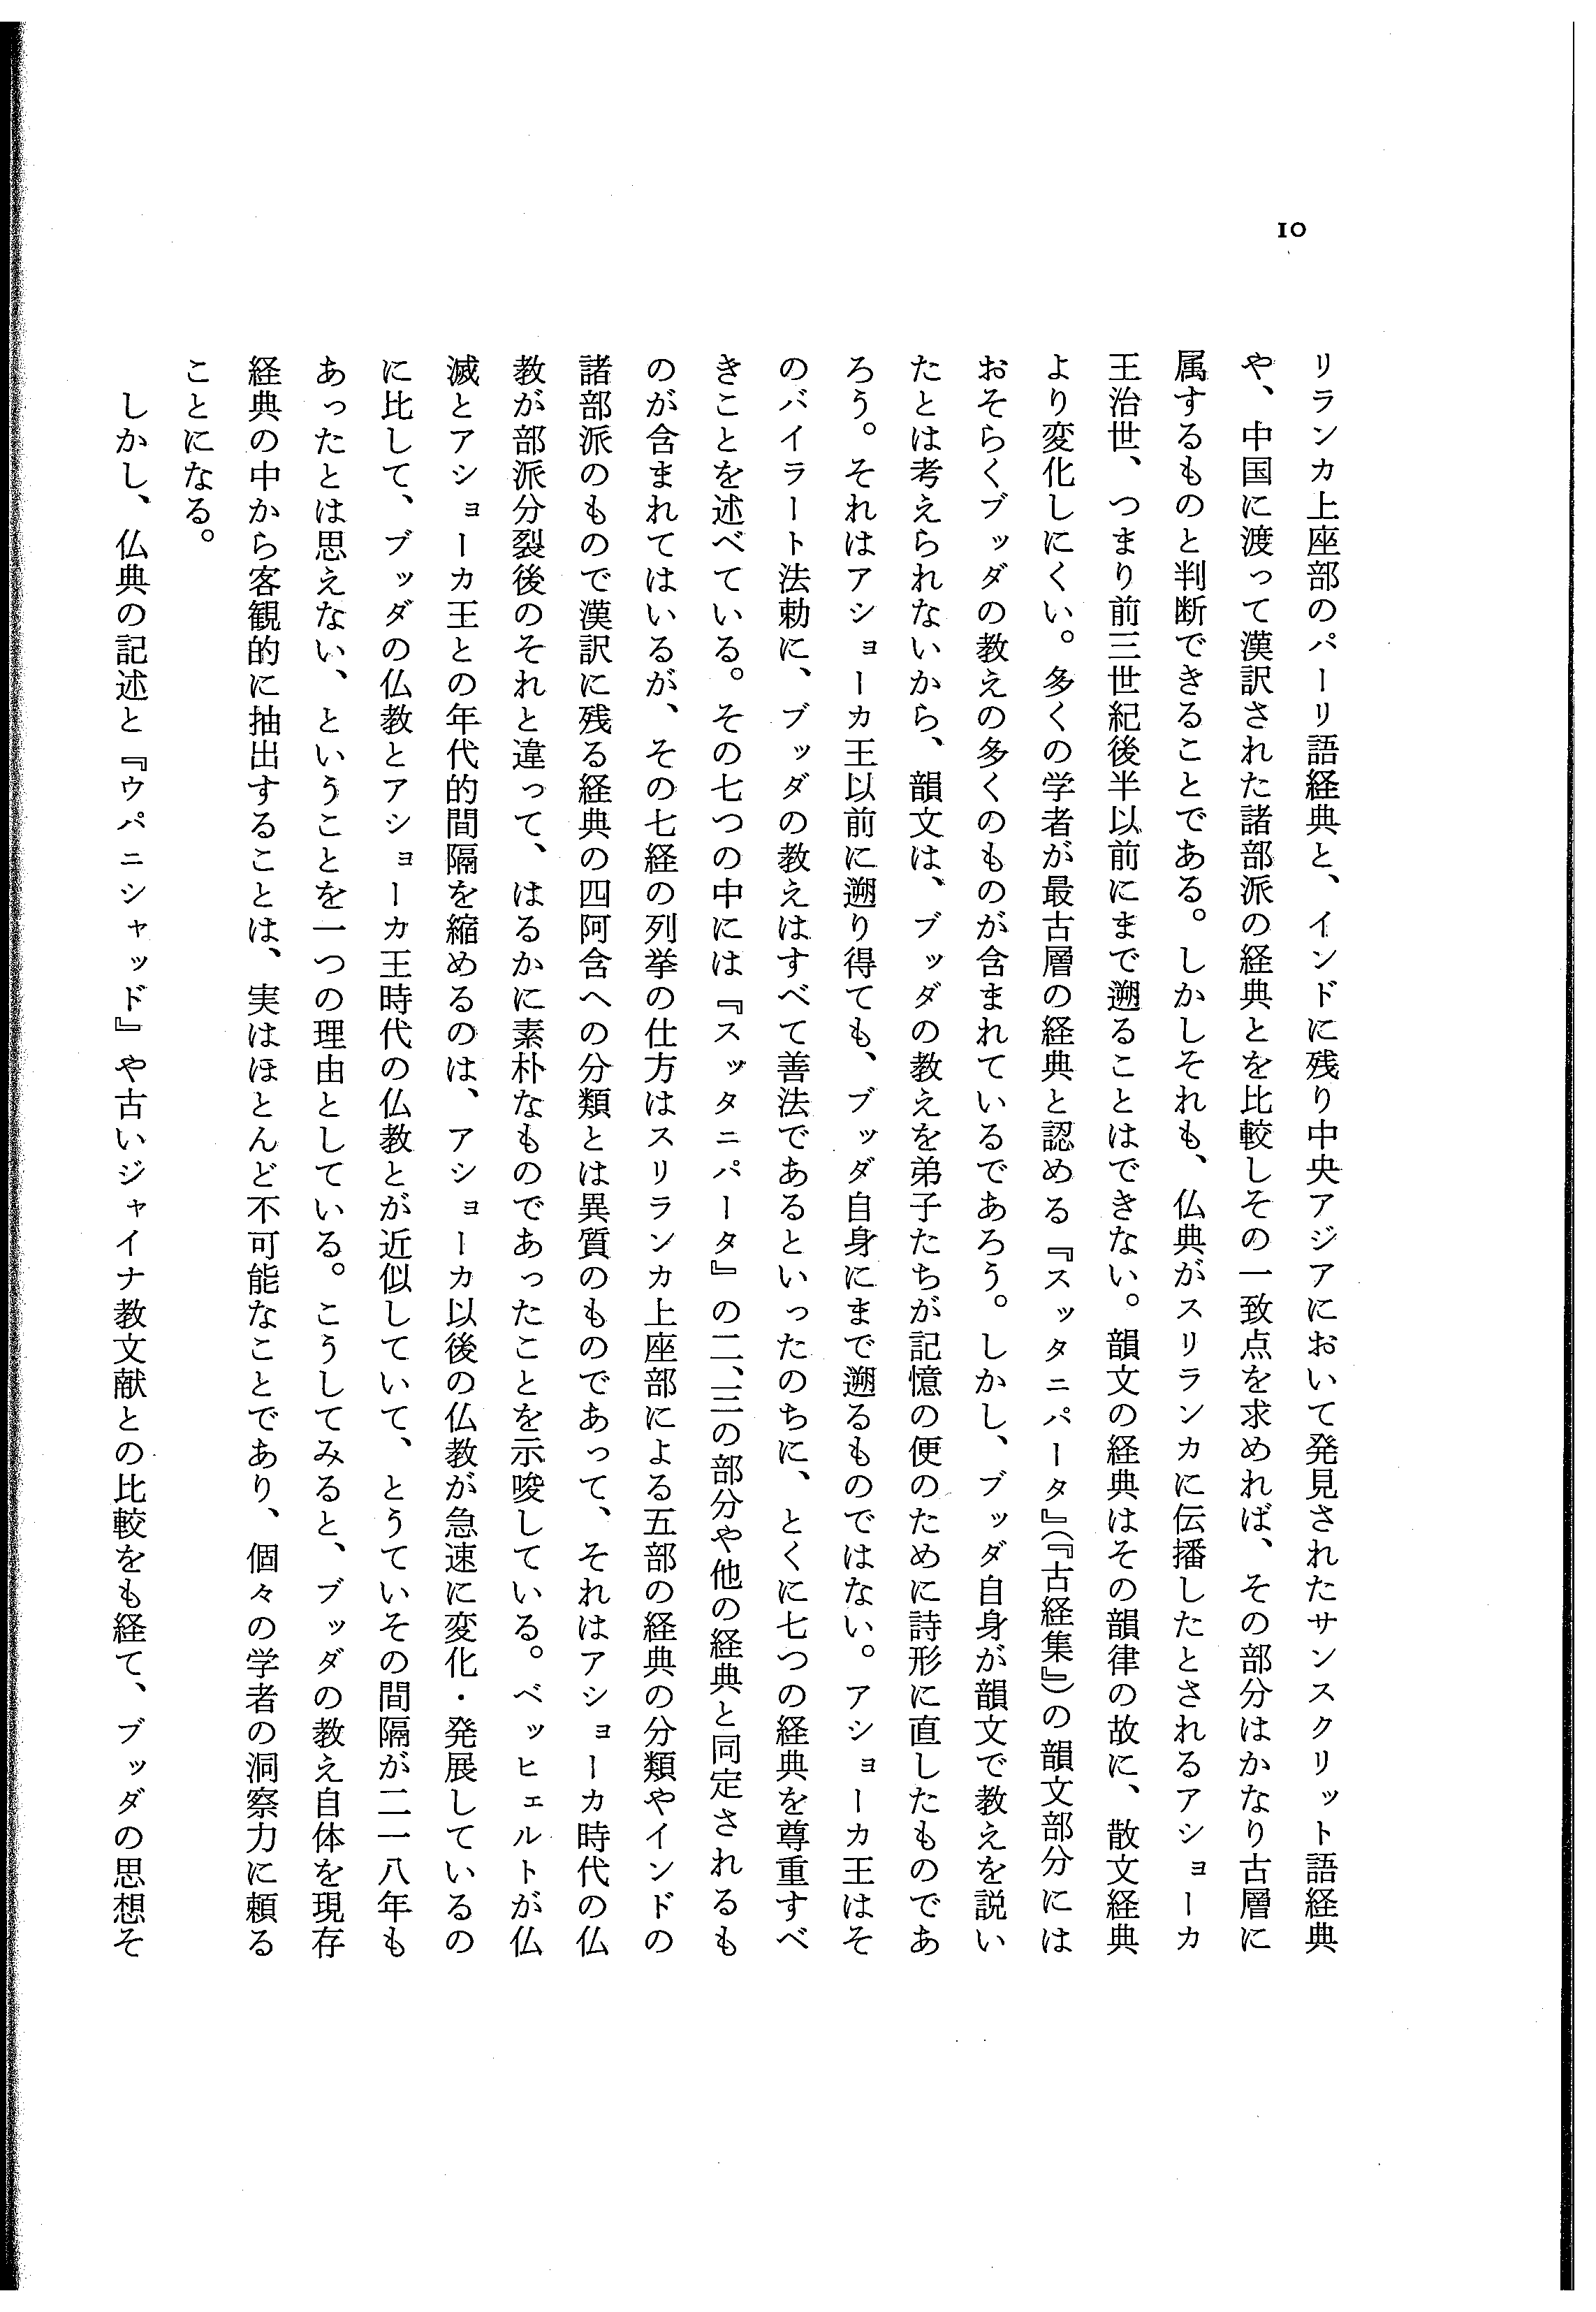 10
リランカ上座部のパーリ語経典と、インドに残り中央アジアにおいて発見されたサンスクリット語経典
や、中国に渡って漢訳された諸部派の経典とを比較しその一致点を求めれば、その部分はかなり古層に
属するものと判断できることである。しかしそれも、仏典がスリランカに伝播したとされるアショーカ
王治世、つまり前三世紀後半以前にまで遡ることはできない。韻文の経典はその韻律の故に、散文経典
より変化しにくい。多くの学者が最古層の経典と認める『スッタニパータ』(『古経集』)の韻文部分には
おそらくブッダの教えの多くのものが含まれているであろう。しかし、ブッダ自身が韻文で教えを説い
たとは考えられないから、韻文は、ブッダの教えを弟子たちが記憶の便のために詩形に直したものであ
ろう。それはアショーカ王以前に遡り得ても、ブッダ自身にまで遡るものではない。アショーカ王はそ
のバイラート法勅に、ブッダの教えはすべて善法であるといったのちに、とくに七つの経典を尊重すべ
きことを述べている。その七つの中には『スッタニパータ』の二、三の部分や他の経典と同定されるも
のが含まれてはいるが、その七経の列挙の仕方はスリランカ上座部による五部の経典の分類やインドの
諸部派のもので漢訳に残る経典の四阿含への分類とは異質のものであって、それはアショーカ時代の仏
教が部派分裂後のそれと違って、はるかに素朴なものであったことを示唆している。ベッヒェルトが仏
滅とアショーカ王との年代的間隔を縮めるのは、アショーカ以後の仏教が急速に変化・発展しているの
に比して、ブッダの仏教とアショーカ王時代の仏教とが近似していて、とうていその間隔が二一八年も
あったとは思えない、ということを一つの理由としている。こうしてみると、ブッダの教え自体を現存
経典の中から客観的に抽出することは、実はほとんど不可能なことであり、個々の学者の洞察力に頼る
ことになる。
しかし、仏典の記述と『ウパニシャッド』や古いジャイナ教文献との比較をも経て、ブッダの思想そ